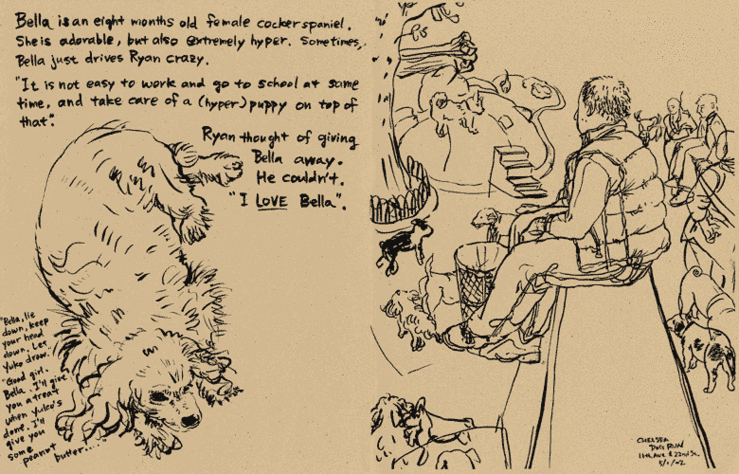 Bella is an eight months old female cocker spaniel.
She is adorable, but also extremely hyper. Sometimes,
Bella just drives Ryan crazy.
"It is not easy to work and go to school at same
time, and take care of a (hyper) puppy on top of
that".
Ryan thought of giving
Bella away.
He couldn't.
"I LOVE Bella".
"Bella, lie
down, keep
your head
down. Let
Yuko draw."
"Good girl,
Bella. I'll give
you a treat
when Yuko's
done. I'll
give you
some
peanut
butter....
CHELSEA
DOG RUN
11th Ave & 22nd St.
5/1/02